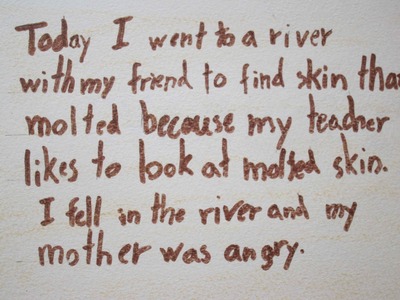 Today I went to a river
with my friend to find skin that
molted because my teacher
likes to look at molted skin.
I fell in the river and my
mother was angry.